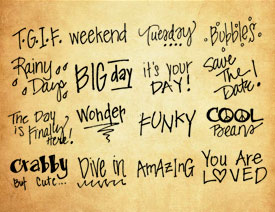 T.G.I.F. weekend Tuesday Bubbles
Rainy Days BIG day it's your DAY! Save The Date!
The Day is Finally Here! Wonder FUNKY COOL Beans
Crabby But Cute... Dive in AmAzINg You Are LOVED